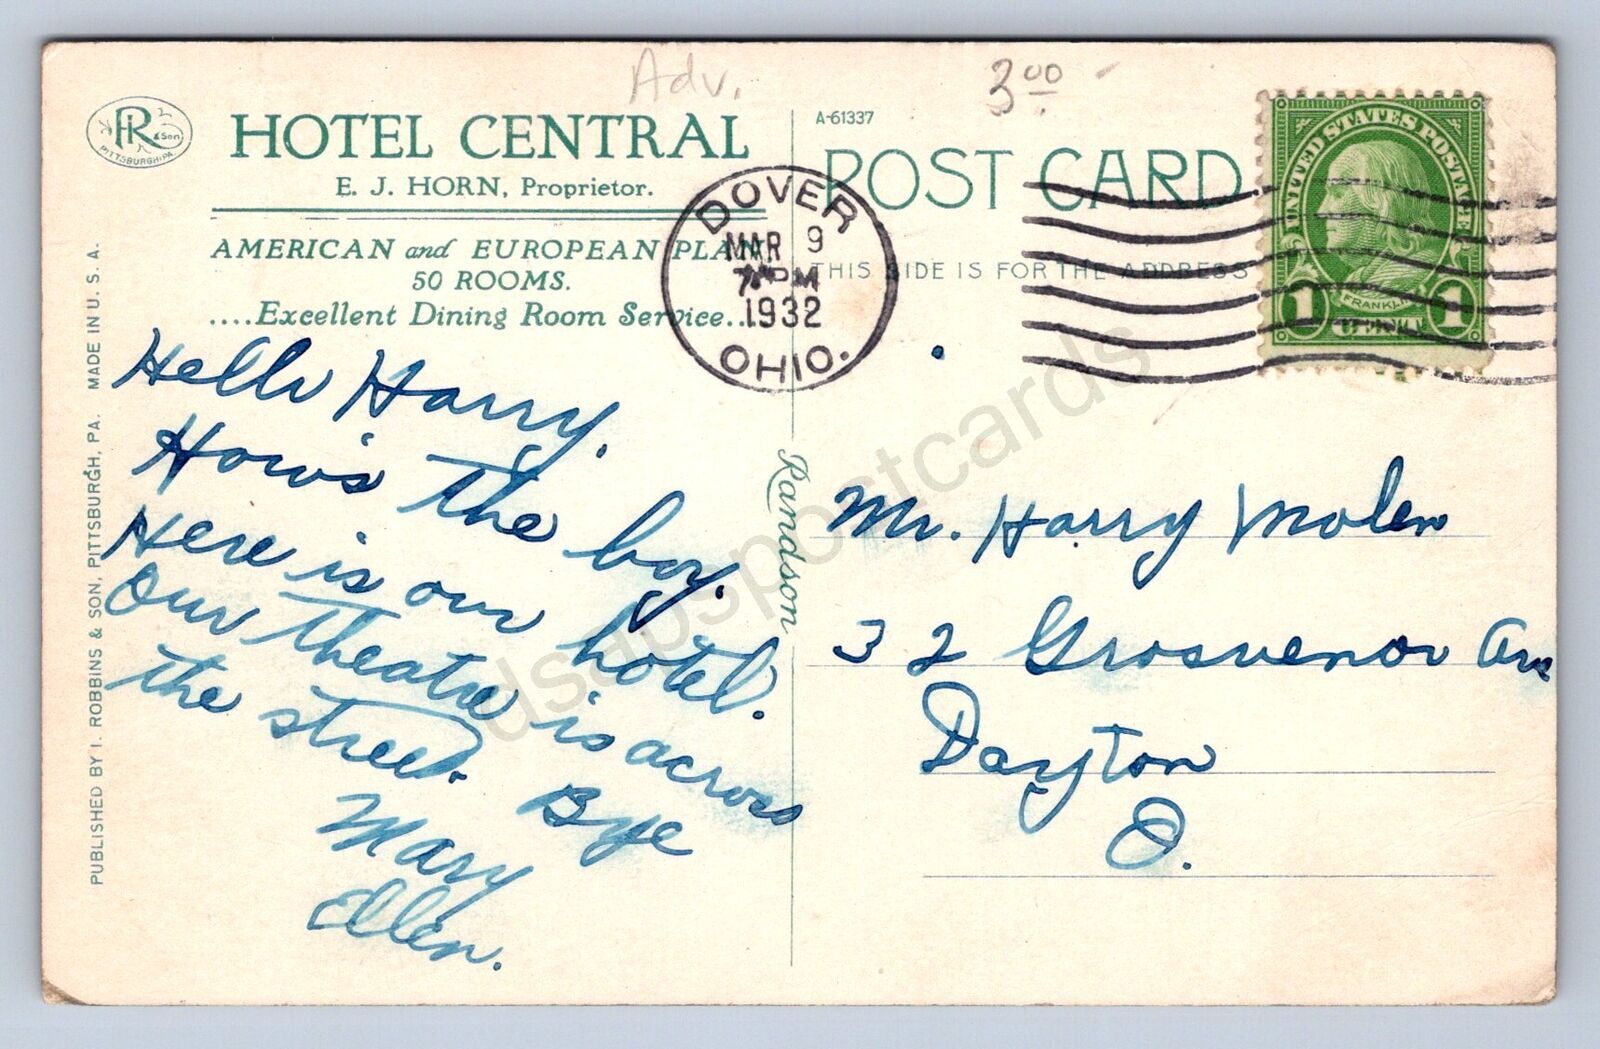 Adv.
3.00
PR & Son
PITTSBURGH, PA.
HOTEL CENTRAL
E. J. HORN, Proprietor.
AMERICAN and EUROPEAN PLAN
50 ROOMS.
....Excellent Dining Room Service....
A-61337
POST CARD
THIS SIDE IS FOR THE ADDRESS
DOVER
MAR 9
7 PM
1932
OHIO.
UNITED STATES POSTAGE
FRANKLIN
1 1
Hello Harry.
How's the boy.
Here is our hotel.
Our theatre is across
the street. Bye
Mary
Ellen.
Mr. Harry Molen
32 Grosvenor Ave
Dayton
O.
Randson
PUBLISHED BY I. ROBBINS & SON, PITTSBURGH, PA. MADE IN U. S. A.
dsapspostcards